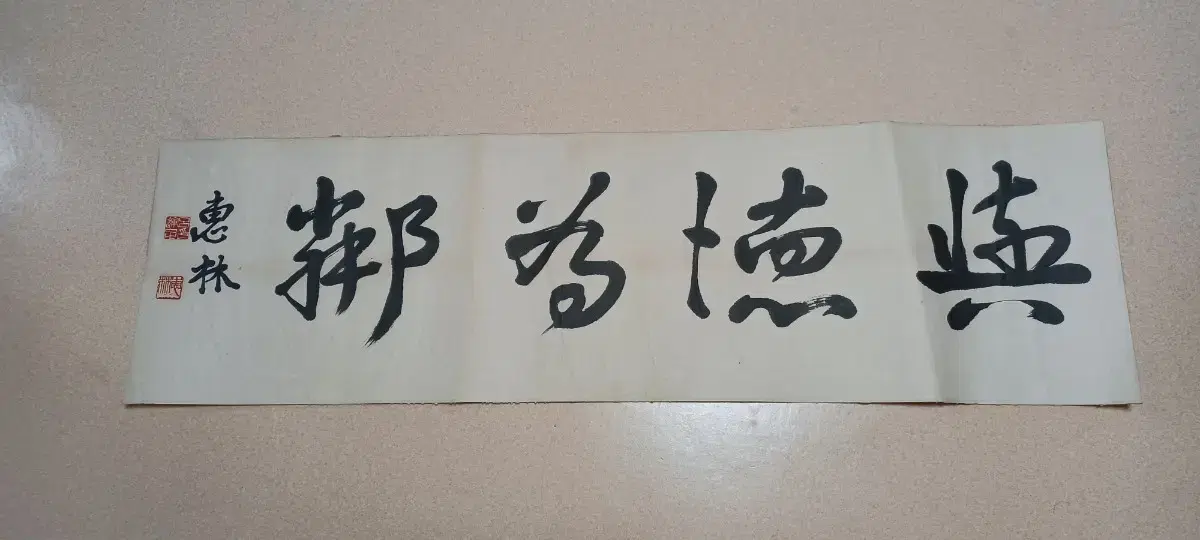 與德為鄰
惠林